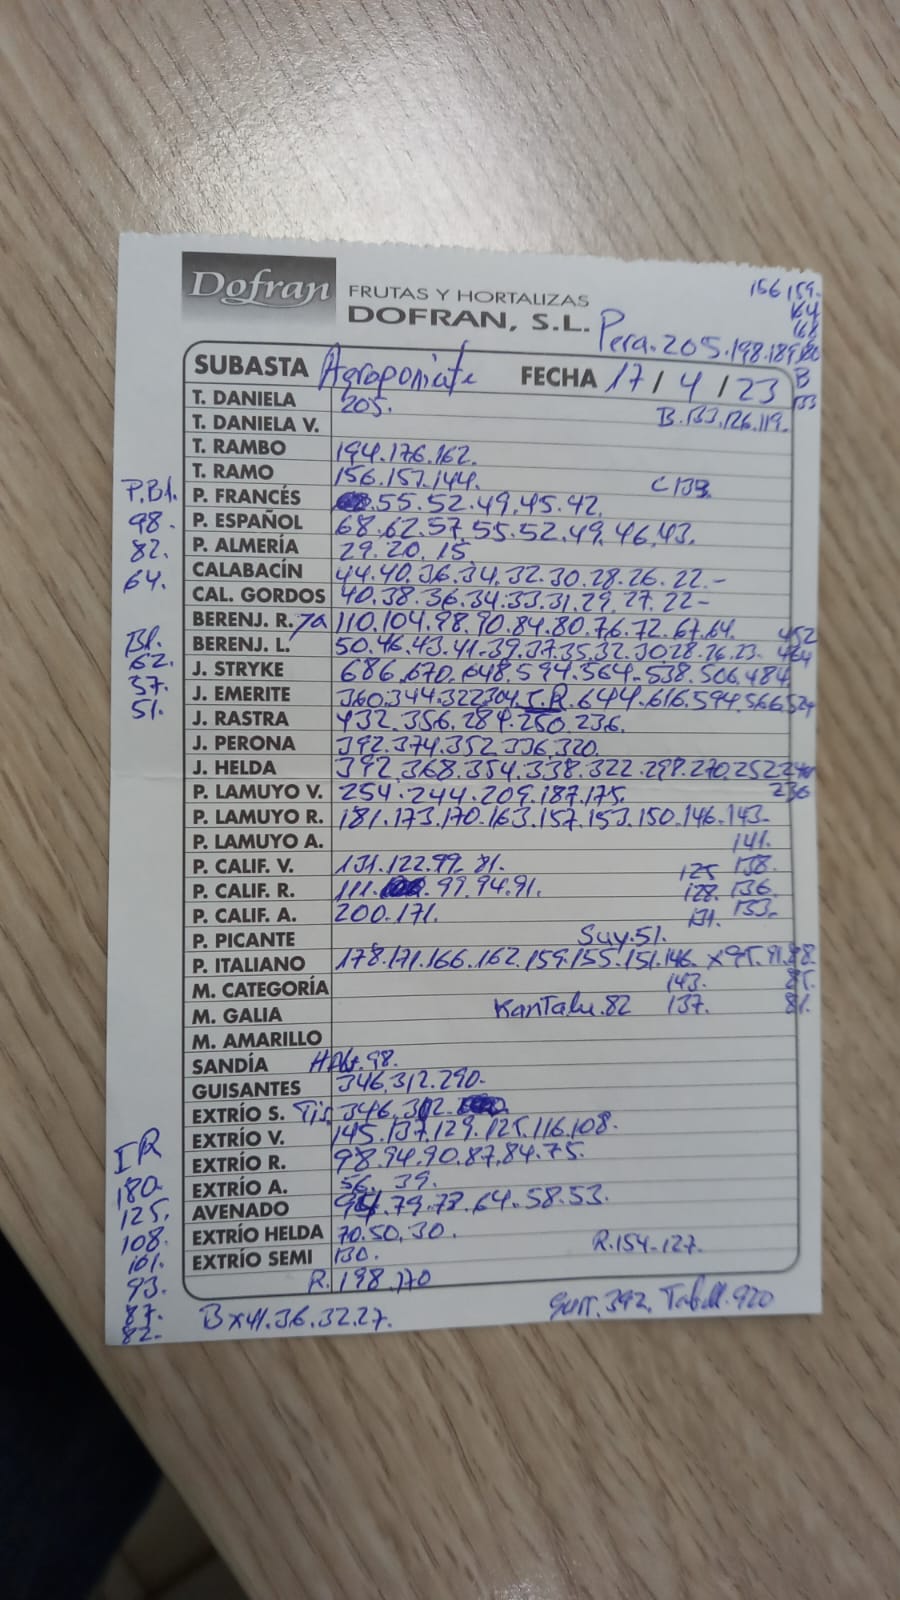 Dofran
FRUTAS Y HORTALIZAS
DOFRAN, S.L.
156 159.
164
168
Pera. 205. 198. 189. 180
SUBASTA Agroponiente FECHA 17 / 4 / 23
B
133
T. DANIELA 205.
T. DANIELA V. B. 133. 126. 119.
T. RAMBO 194. 176. 162.
T. RAMO 156. 151. 144. C 139.
P. FRANCÉS 55. 52. 49. 45. 42.
P. ESPAÑOL 68. 62. 57. 55. 52. 49. 46. 43.
P. ALMERÍA 29. 20. 15
CALABACÍN 44. 40. 36. 34. 32. 30. 28. 26. 22. -
CAL. GORDOS 40. 38. 36. 34. 33. 31. 29. 27. 22 -
BERENJ. R. 110. 104. 98. 90. 84. 80. 76. 72. 67. 64. 452
BERENJ. L. 50. 46. 43. 41. 39. 37. 35. 32. 30 28. 26. 23. 464
J. STRYKE 686. 670. 648. 594. 564. 538. 506. 484
J. EMERITE 360. 344. 322 304. J.R. 644. 616. 594. 566. 524
J. RASTRA 432. 356. 284. 250. 236.
J. PERONA 392. 374. 352. 336. 320.
J. HELDA 392. 368. 354. 338. 322. 298. 270. 252
236
P. LAMUYO V. 254. 244. 209. 187. 175.
P. LAMUYO R. 181. 173. 170. 163. 157. 153. 150. 146. 143.
P. LAMUYO A. 141.
P. CALIF. V. 131. 122. 99. 81. 125 138.
P. CALIF. R. 111. 99. 94. 91. 128. 136.
P. CALIF. A. 200. 171. 131. 133.
P. PICANTE Suy. 51.
P. ITALIANO 178. 171. 166. 162. 159. 155. 151. 146. x 95. 91. 88
M. CATEGORÍA 143. 85.
M. GALIA Kantalu. 82 137. 81.
M. AMARILLO
SANDÍA 98.
GUISANTES 346. 312. 290.
EXTRÍO S. Tis. 346. 312.
EXTRÍO V. 145. 137. 129. 125. 116. 108.
EXTRÍO R. 98. 94. 90. 87. 84. 75.
EXTRÍO A. 56. 39.
AVENADO 79. 73. 64. 58. 53.
EXTRÍO HELDA 70. 50. 30.
EXTRÍO SEMI 130. R. 154-127.
R. 198. 170
B x 41. 36. 32. 27. Gurr. 392. Tabell. 920
P. Bl.
98.
82.
64.
Bl.
62.
57.
51.
IR
180
125.
108.
101.
93.
87.
82.